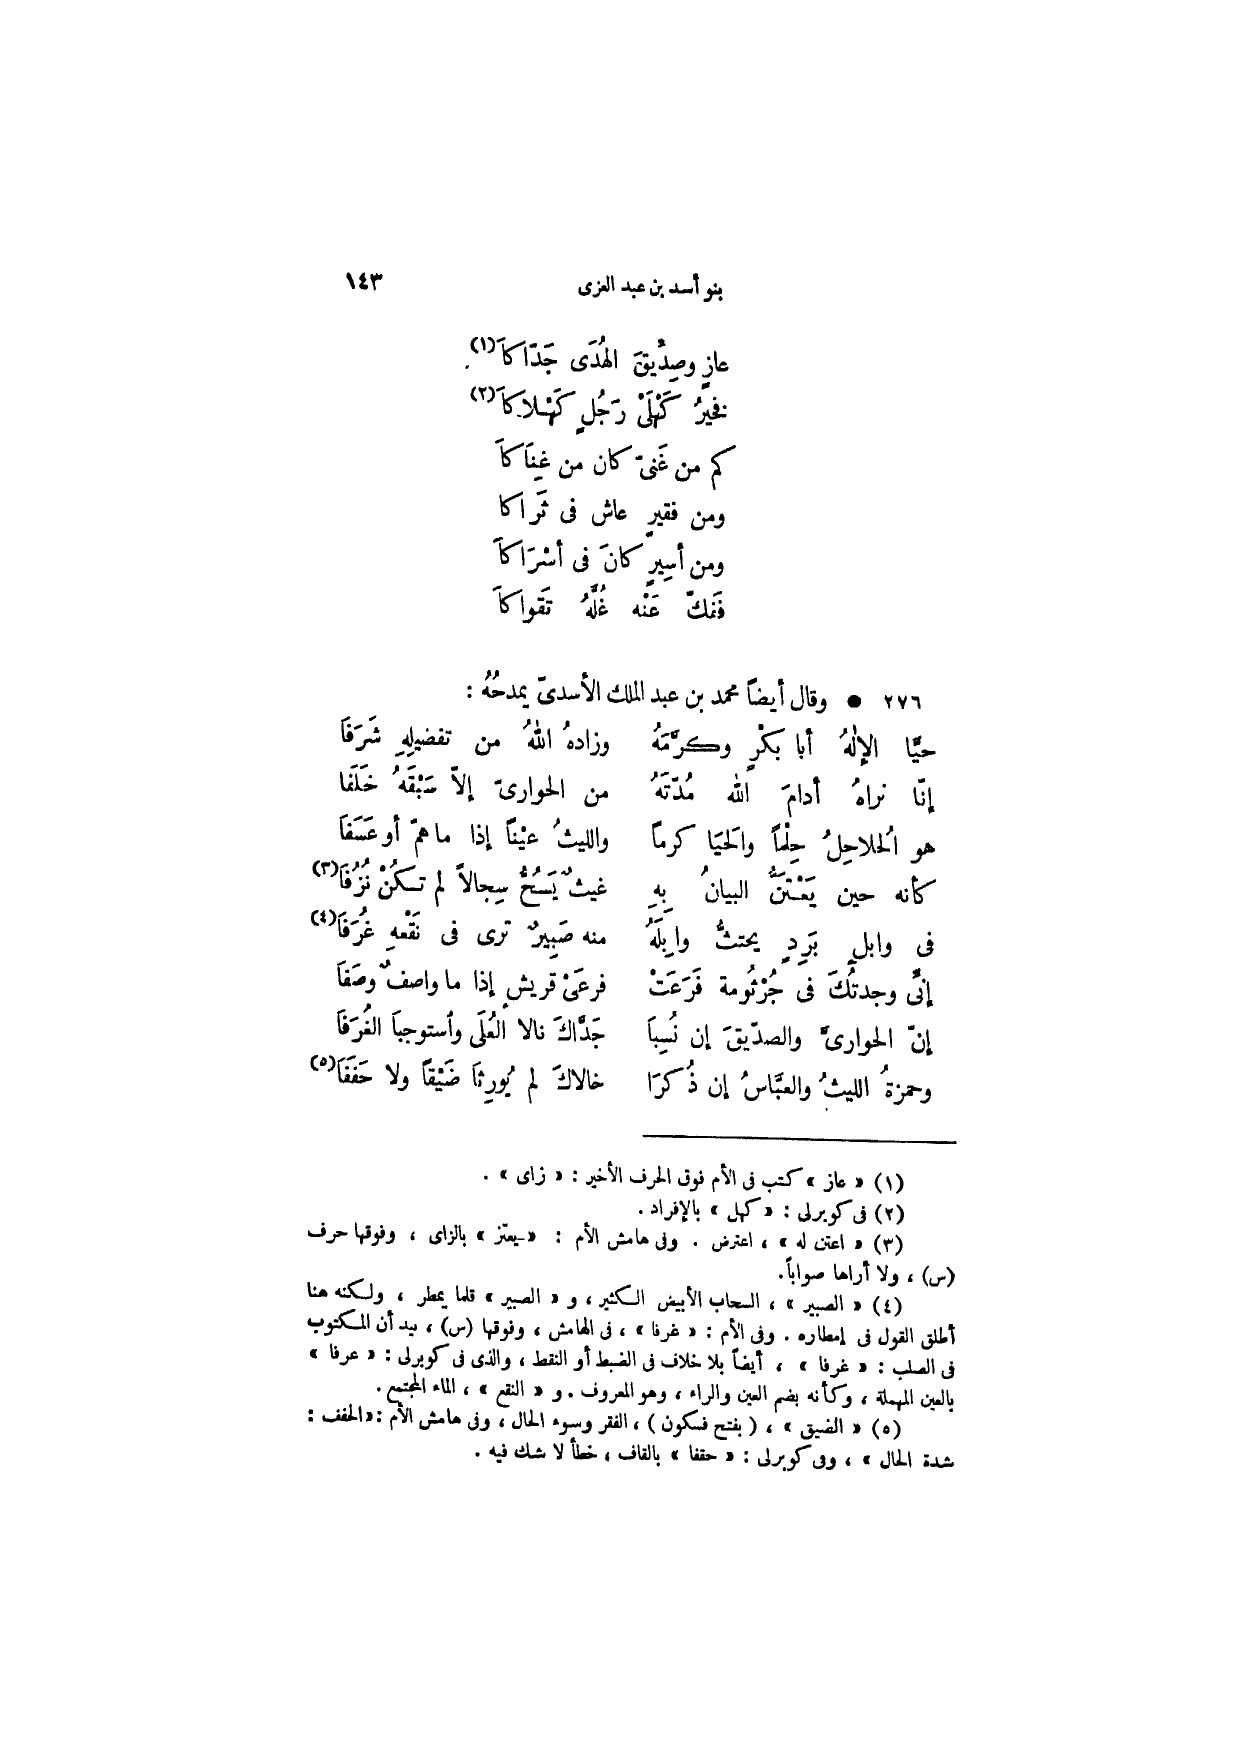 بنو أسد بن عبد العزى ١٤٣
عازٍ وصِدِّيقَ الهُدَى جَدّاكاَ(١).
فخيرُ كَهْلَىْ رَجُلٍ كَهْلاكاَ(٢)
كم من غَنىّ كان من غِنَاكاَ
ومن فقيرٍ عاش فى ثَراكا
ومن أسِيرٍ كانَ فى أسْرَاكاَ
فَفكّ عَنْه غُلَّهُ تَقواكاَ
٢٧٦ ● وقال أيضاً محمد بن عبد الملك الأسدىّ يمدحُهُ :
حيَّا الإلٰهُ أبا بَكْرٍ وكرَّمَهُ وزادهُ اللهُ من تفضيلِهِ شَرَفَا
إنّا نراهُ أدامَ الله مُدّتَهُ من الحوارىّ إلاّ سَبْقَهُ خَلَفَا
هو الُحلاحِلُ حِلْماً والَحيَا كرماً والليثُ عيْناً إذا ماهمّ أو عَسَفَا
كأنه حين يَعْتنَّ البيانُ بِهِ غيثٌ يَسُحُّ سِجالاً لم تكنْ نُزُفَا(٣)
فى وابلٍ بَرَدٍ يحتثُّ وابِلَهُ منه صَبِيرٌ ترى فى نَقْعهِ غُرَفَا(٤)
إنَّى وجدتُكَ فى جُرْثُومة فَرَعَتْ فرعَىْ قريشٍ إذا ما واصفٌ وصَفَا
إنّ الحوارىَّ والصدّيقَ إن نُسِبَا جَدَّاكَ نالا العُلَى وٱستوجبَا الغُرَفَا
وحمزةُ الليثُ والعبَّاسُ إن ذُكرَا خالاكَ لم يُورِثَا ضَيْقاً ولا حَفَفَا(٥)
(١) « عاز » كتب فى الأم فوق الحرف الأخير : « زاى » .
(٢) فى كوبرلى : « كهل » بالإفراد .
(٣) « اعتن له » ، اعترض . وفى هامش الأم : « يعتز » بالزاى ، وفوقها حرف
(س) ، ولا أراها صواباً.
(٤) « الصبير » ، السحاب الأبيض الكثير ، و « الصبير » قلما يمطر ، ولكنه هنا
أطلق القول فى إمطاره . وفى الأم : « غرفا » ، فى الهامش ، وفوقها (س) ، بيد أن المكتوب
فى الصلب : « غرفا » ، أيضاً بلا خلاف فى الضبط أو النقط ، والذى فى كوبرلى : « عرفا »
بالعين المهملة ، وكأنه بضم العين والراء ، وهو المعروف . و « النقع » ، الماء المجتمع .
(٥) « الضيق » ، ( بفتح فسكون ) ، الفقر وسوء الحال ، وفى هامش الأم : « الحفف :
شدة الحال » ، وفى كوبرلى : « حقفا » بالقاف ، خطأ لا شك فيه .